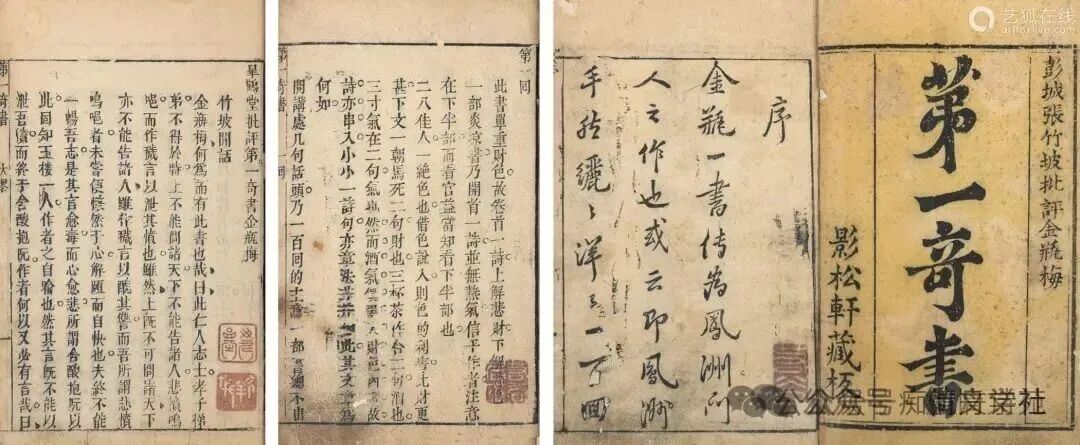 彭城張竹坡批評金瓶梅
第一奇書
影松軒藏板
序
金瓶一書傳為鳳洲門
人之作也或云即鳳洲
手然纚〻洋〻一百回
第一回
此書單重財色故卷首一詩上解悲財下解
一部炎凉書乃開首一詩並無熱氣信乎作者注意
在下半部而看官益當知看下半部也
二八佳人一絕色也借色說入則色的利害比財更
甚下文一朝馬死二句財也三杯茶作合二句酒也
三寸氣在二句氣也然而酒氣俱串入財色內講故
詩亦串入小小一詩句亦章法井井如此其文章為
何如
開講處幾句話頭乃一百回的主意一部書總不出
第一奇書
一回
皐鶴堂批評第一奇書金瓶梅
竹坡閒話
金瓶梅何為而有此書也哉曰此仁人志士孝子悌
弟不得於時上不能問諸天下不能告諸人悲憤嗚
唈而作穢言以泄其憤也雖然上既不可問諸天下
亦不能告諸人雖作穢言以醜其讐而吾所謂悲憤
嗚唈者未嘗便慊然于心解頤而自快也夫終不能
一暢吾志是其言愈毒而心愈悲所謂含酸抱阮以
此固知玉樓一人作者之自喻也然其言既不能以
泄吾憤而終于含酸抱阮作者何以又必有言哉曰
第一奇書
艺狐在线
artfoxlive.com
公众号